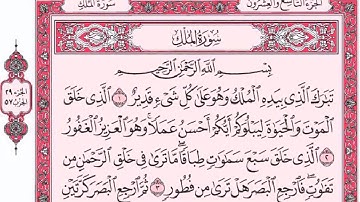 الجزء التاسع والعشرون
سورة الملك
الجزء ٢٩
الحزب ٥٧
سُورَةُ المُلْكِ
بِسْمِ اللَّهِ الرَّحْمَنِ الرَّحِيمِ
تَبَٰرَكَ الَّذِي بِيَدِهِ الْمُلْكُ وَهُوَ عَلَىٰ كُلِّ شَيْءٍ قَدِيرٌ ١ الَّذِي خَلَقَ
الْمَوْتَ وَالْحَيَوٰةَ لِيَبْلُوَكُمْ أَيُّكُمْ أَحْسَنُ عَمَلًا ۚ وَهُوَ الْعَزِيزُ الْغَفُورُ
٢ الَّذِي خَلَقَ سَبْعَ سَمَٰوَٰتٍ طِبَاقًا ۖ مَّا تَرَىٰ فِي خَلْقِ الرَّحْمَٰنِ مِن
تَفَٰوُتٍ ۖ فَارْجِعِ الْبَصَرَ هَلْ تَرَىٰ مِن فُطُورٍ ٣ ثُمَّ ارْجِعِ الْبَصَرَ كَرَّتَيْنِ